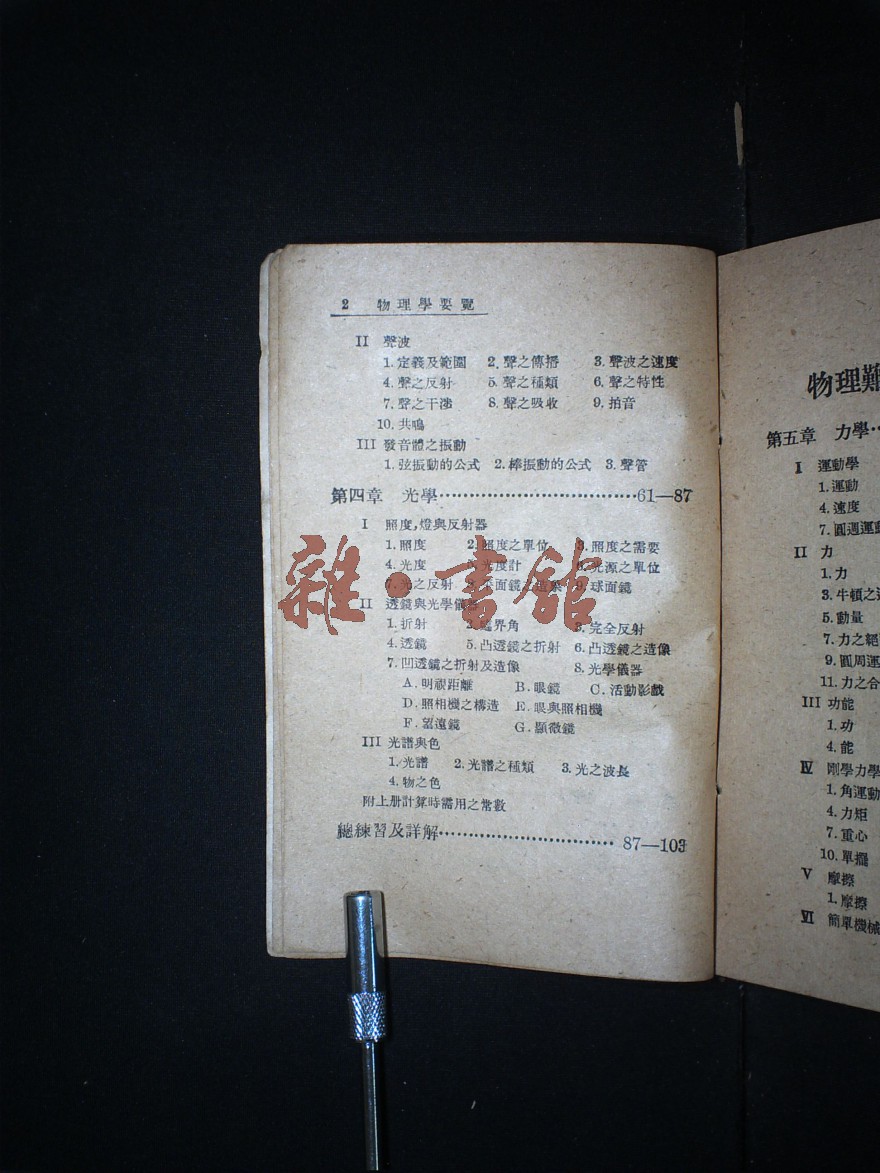 2 物理學要覽
II 聲波
1.定義及範圍 2.聲之傳播 3.聲波之速度
4.聲之反射 5.聲之種類 6.聲之特性
7.聲之干涉 8.聲之吸收 9.拍音
10.共鳴
III 發音體之振動
1.弦振動的公式 2.棒振動的公式 3.聲管
第四章 光學 61—87
I 照度,燈與反射器
1.照度 2.照度之單位 3.照度之需要
4.光度 5.光度計 6.光源之單位
7.光之反射 8.平面鏡之造像 9.球面鏡
II 透鏡與光學儀器
1.折射 2.臨界角 3.完全反射
4.透鏡 5.凸透鏡之折射 6.凸透鏡之造像
7.凹透鏡之折射及造像 8.光學儀器
A.明視距離 B.眼鏡 C.活動影戲
D.照相機之構造 E.眼與照相機
F.望遠鏡 G.顯微鏡
III 光譜與色
1.光譜 2.光譜之種類 3.光之波長
4.物之色
附上册計算時需用之常數
總練習及詳解 87—103
雜·書館
物理難
第五章 力學
I 運動學
1.運動
4.速度
7.圓週運動
II 力
1.力
3.牛頓之
5.動量
7.力之
9.圓周運
11.力之合
III 功能
1.功
4.能
IV 剛學力學
1.角運動
4.力矩
7.重心
10.單擺
V 摩擦
1.摩擦
VI 簡單機械